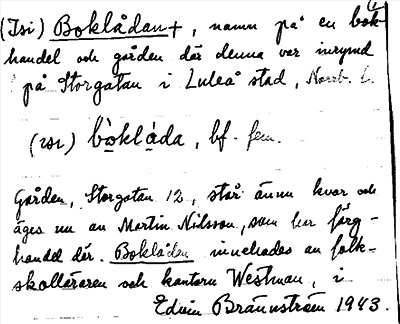 (Isi) Boklådan +, namn på en bok-
handel och gården där denna var inrymd
på Storgatan i Luleå stad, Norrb. l.
(isi) bòklåda, bf. fem.
Gården, Storgatan 12, står ännu kvar och
äges nu av Martin Nilsson, som har färg-
handel där. Boklådan innehades av folk-
skolläraren och kantorn Westman, i
Edvin Brännström 1943.